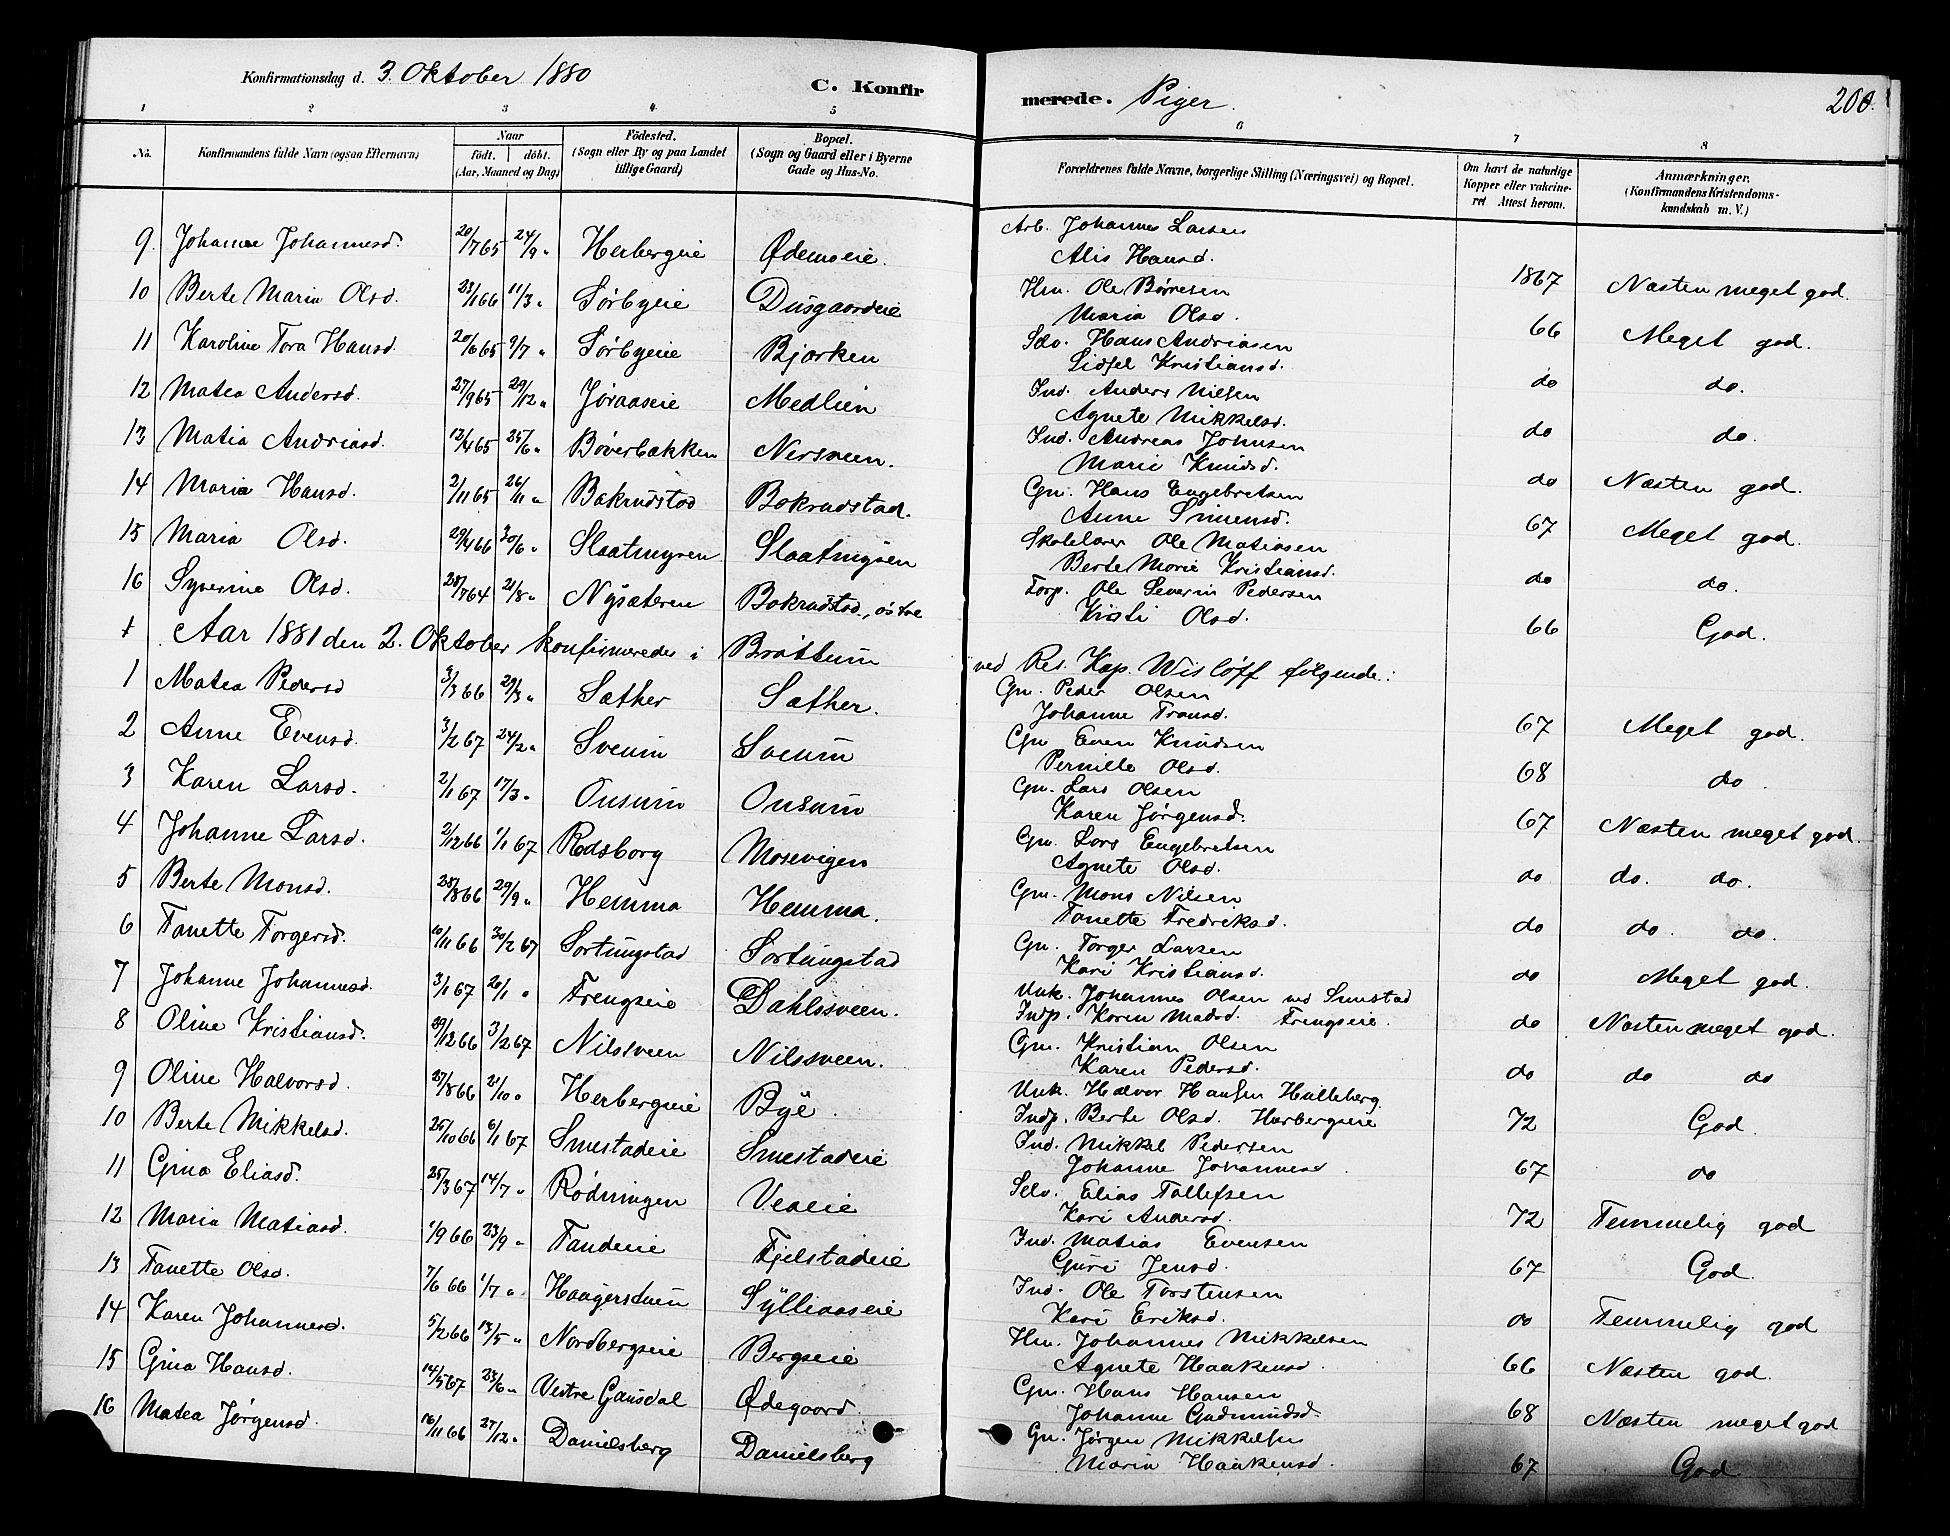 Konfirmationsdag d. 3. Oktober 1880 C. Konfirmerede. Piger. 200.
1 2 3 4 5 6 7 8
No. Konfirmandens fulde Navn (ogsaa Efternavn) Naar født. døbt. (Aar, Maaned og Dag) Fødested. (Sogn eller By og paa Landet tillige Gaard) Bopæl. (Sogn og Gaard eller i Byerne Gade og Hus-No. Forældrenes fulde Navne, borgerlige Stilling (Næringsvei) og Bopæl. Om havt de naturlige Kopper eller vakcineret Attest herom. Anmærkninger. (Konfirmandens Kristendomskundskab m. V.)
9. Johanne Johannesd. 20/7 65 24/9 " Herbergeie Ødemoeie. Arb. Johannes Larsen
Alis Hansd. 1867 Næsten meget god.
10 Berte Maria Olsd. 23/1 66 11/3 " Sørbyeie Dusgaardeie Hm. Ole Børresen
Maria Olsd. 66 Meget god.
11 Karoline Tora Hansd. 20/6 65 9/7 " Sørbyeie Bjørken Selv. Hans Andriasen
Sidsel Kristiansd. do do.
12 Matea Andersd. 27/9 65 29/12 " Jøraaseie Medlien Ind. Anders Nielsen
Agnete Mikkelsd. do do.
13 Matia Andriasd. 12/4 65 25/6 " Bøverbakken Nersveen. Ind. Andreas Johnsen
Marie Knudsd. do Næsten god.
14 Maria Hansd. 2/11 65 26/11 " Bakrudstad Bokrudstad. Gm. Hans Engebretsen
Anne Simensd. 67 Meget god.
15 Maria Olsd. 29/4 66 20/6 " Slaatmyren Slaatmyren Skolelærer Ole Matiasen
Berte Marie Kristiansd. do do.
16 Syverine Olsd. 28/7 64 21/8 " Nysæteren Bokrudstad, østre Torp. Ole Severin Pedersen
Kristi Olsd. 66 God.
Aar 1881 den 2. Oktober konfirmeredes i Brøttum ved Res. Kap. Wisløff følgende:
1 Matea Pedersd 3/3 66 29/3 " Sæther Sæther. Gm. Peder Olsen
Johanne Fransd. 67 Meget god.
2 Anne Evensd. 3/2 67 24/2 " Sveum Sveum Gm Even Knudsen
Pernille Olsd. 68 do.
3 Karen Larsd. 2/1 67 17/3 " Onsum Onsum Gm. Lars Olsen
Karen Jørgensd. 67 Næsten meget god.
4 Johanne Larsd. 2/12 66 1/1 67 Rodsborg Mosevigen Gm. Lars Engebretsen
Agnete Olsd. do do. do.
5 Berte Monsd. 28/8 66 29/9 " Hemma Hemma. Gm. Mons Nilsen
Tanette Fredriksd. do do. do.
6 Tanette Torgersd. 10/11 66 30/2 67 Sortungstad Sortungstad Gm. Torger Larsen
Kari Kristiansd. do Meget god.
7 Johanne Johannesd. 3/1 67 20/1 " Frengseie Dahlssveen. Unk. Johannes Olsen ved Smestad
Indp. Karen Madsd. Frengseie. do Næsten meget god.
8 Oline Kristiansd. 29/12 66 3/2 67 Nilsveen Nilssveen. Gm. Kristian Olsen
Karen Pedersd. do do do
9 Oline Halvorsd. 27/8 66 21/10 " Herbergeie Bye. Unk. Halvor Hansen Hulleberg.
Indp. Berte Olsd. Herbergseie 72 God.
10 Berte Mikkelsd. 25/10 66 6/1 67 Smestadeie Smestadeie Ind. Mikkel Pedersen
Johanne Johannesd. 67 do
11 Gina Eliasd. 25/3 67 14/7 " Rødningen Veaeie Selv. Elias Tollefsen
Kari Andersd. 72 Temmelig god
12 Maria Matiasd. 1/9 66 23/9 " Fandeie Fjelstadeie Ind. Matias Evensen
Guri Jensd. 67 God.
13 Tanette Olsd. 7/6 66 1/7 " Haagerstuen Sylliaaseie Ind. Ole Torstensen
Kari Eriksd. do Temmelig god
14 Karen Johannesd. 5/2 66 13/5 " Nordbergseie Bergseie Hm. Johannes Mikkelsen
Agnete Haakensd. 66 Næsten god.
15 Gina Hansd. 14/5 67 23/6 " Vestre Gausdal Ødegaard. Gm. Hans Hansen
Johanne Gudmundsd. 68 Næsten meget god
16 Matea Jørgensd. 16/11 66 27/12 " Danielsberg Danielsberg Gm. Jørgen Mikkelsen
Marin Haakensd. 67 God